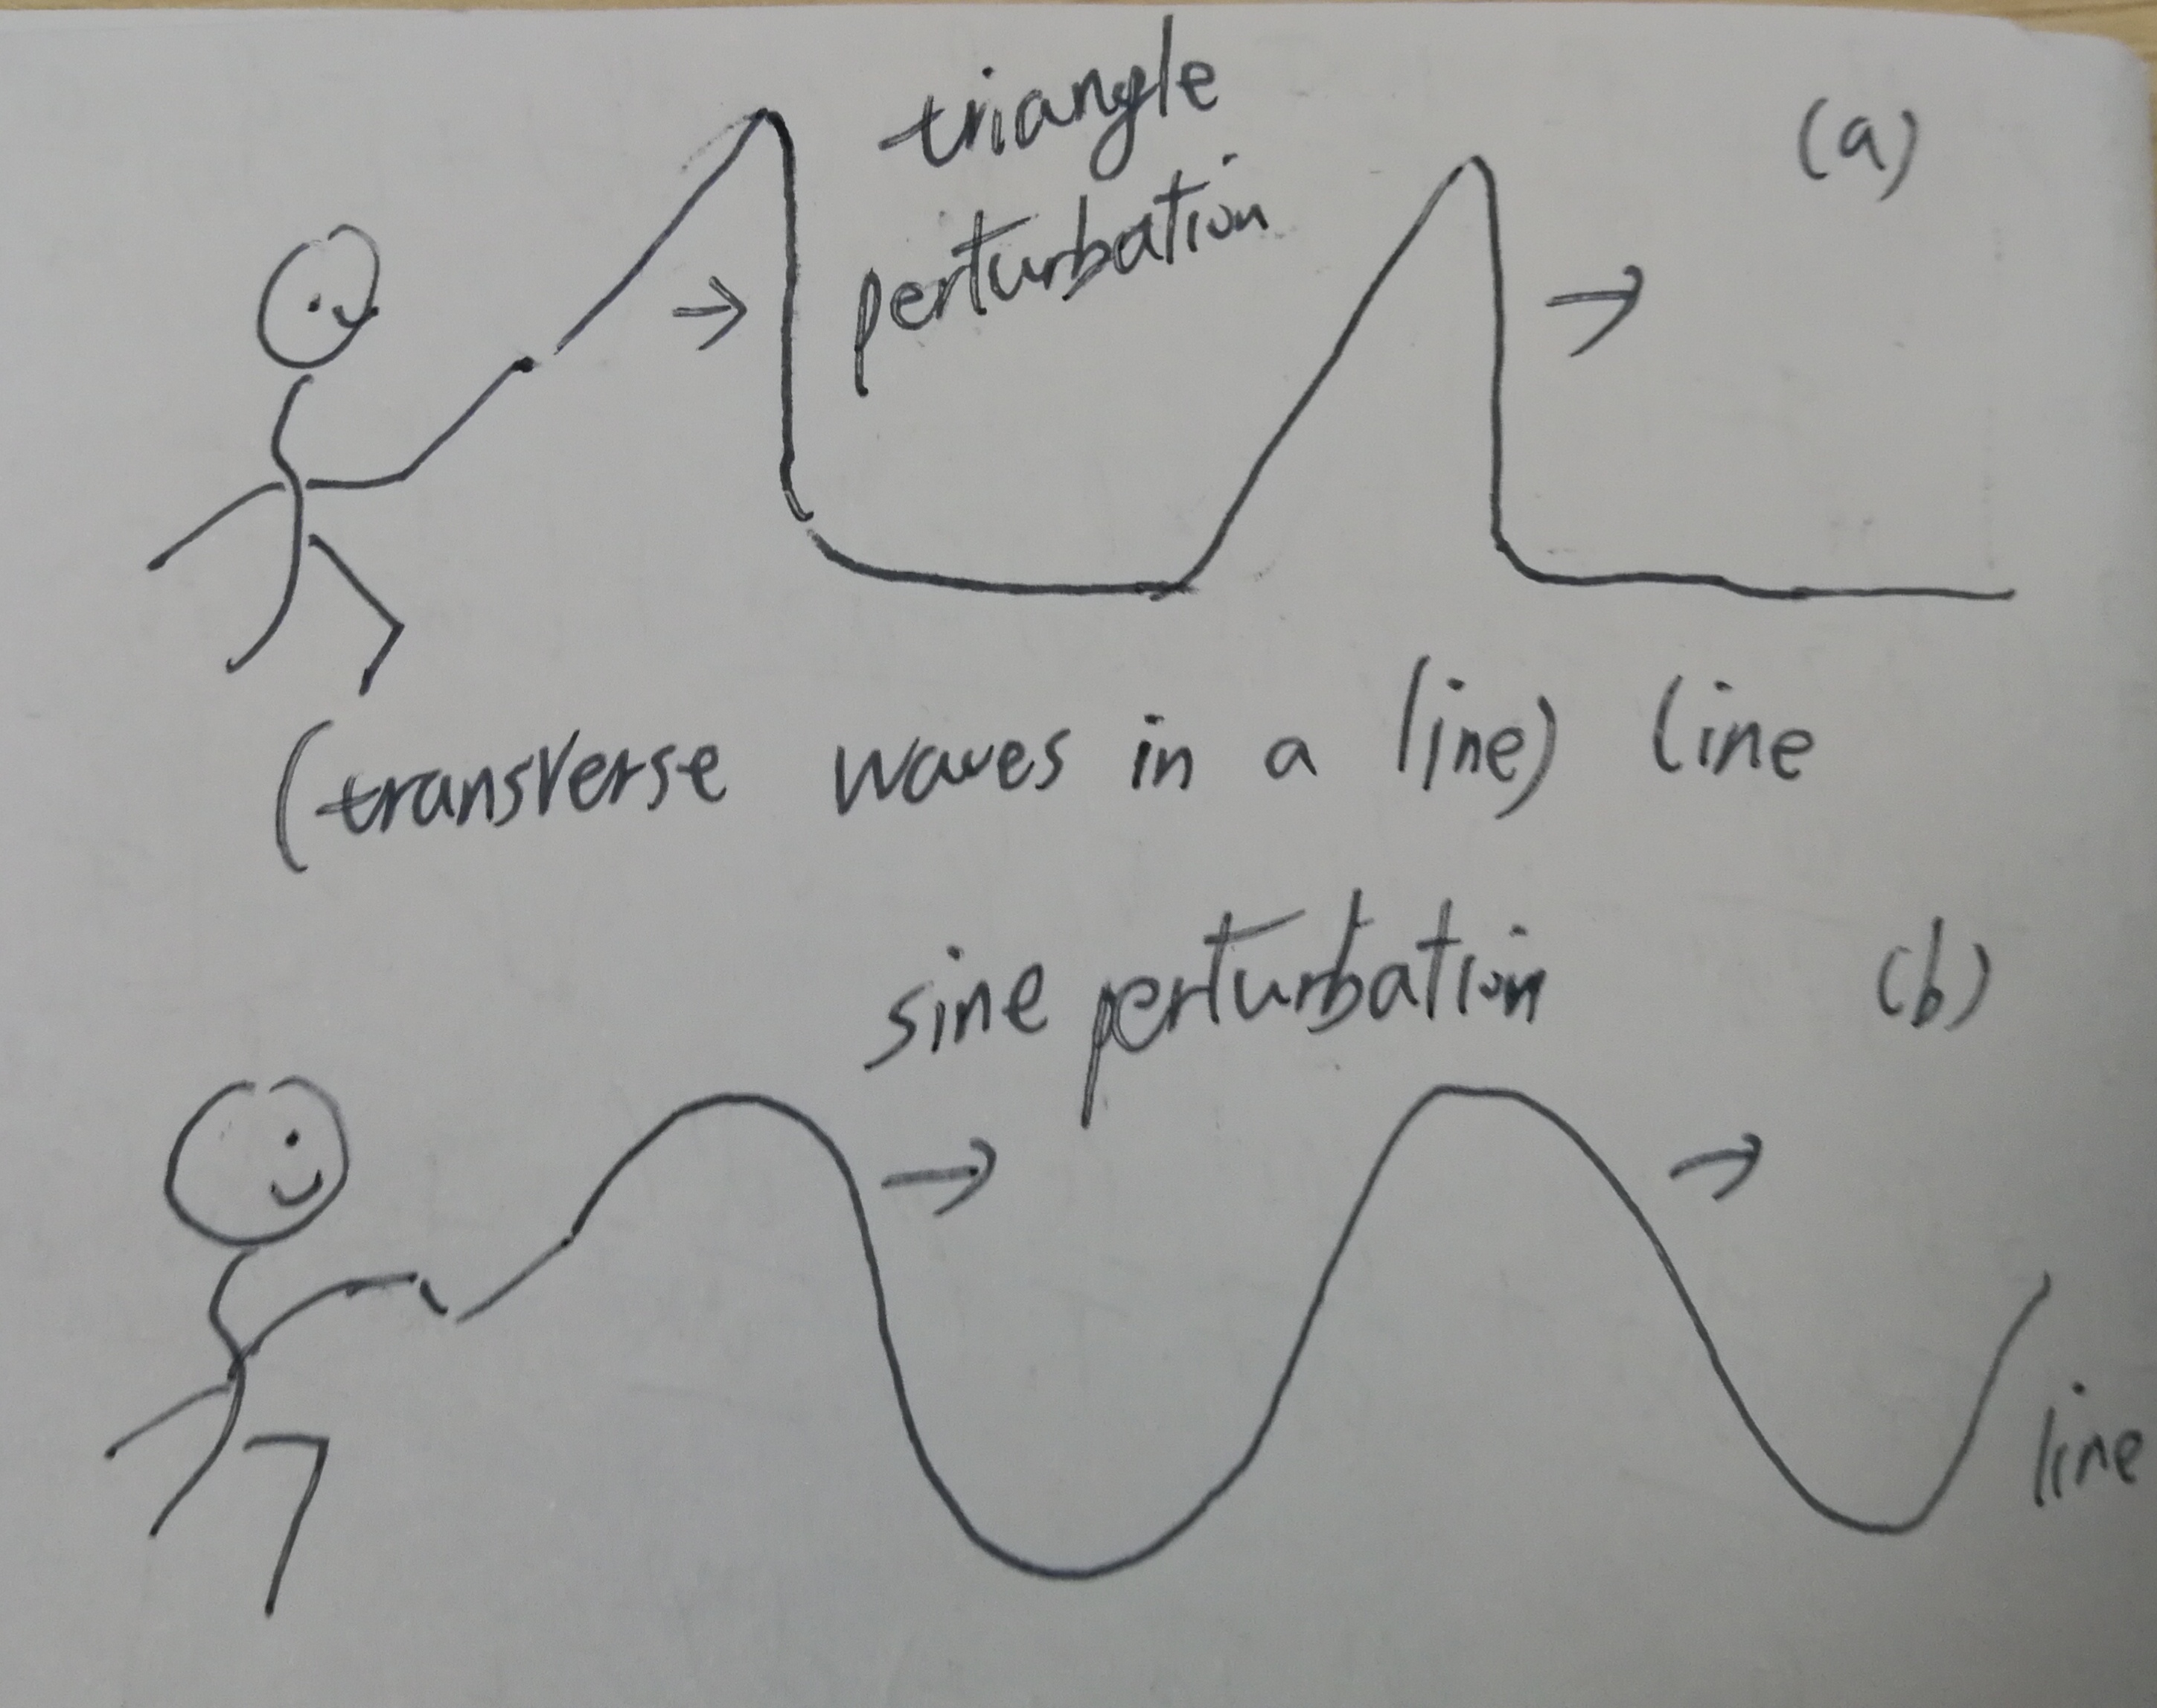 triangle
perturbation
(a)
(transverse waves in a line) line
sine perturbation
(b)
line